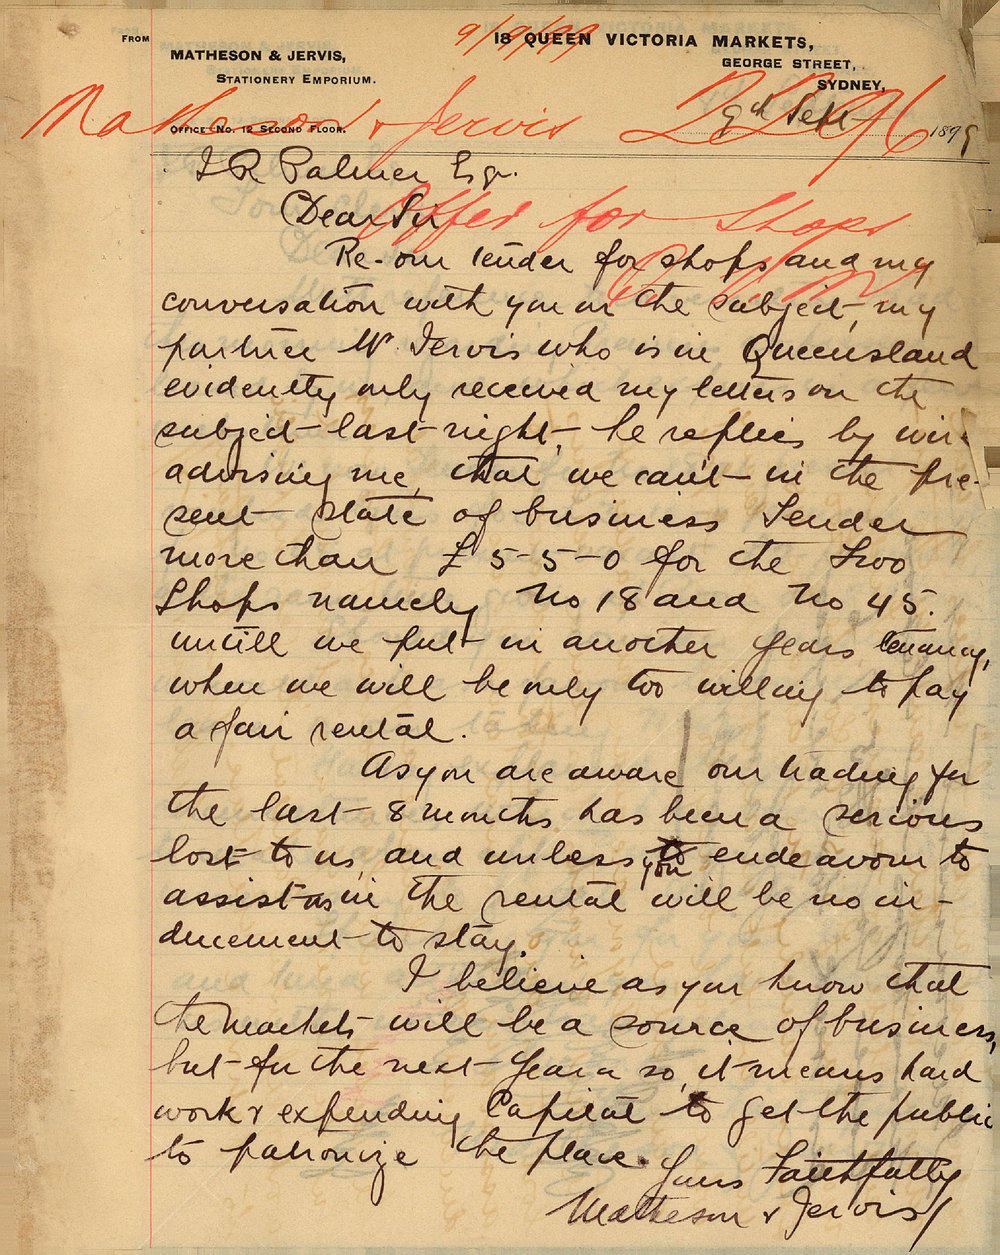 9/9/99
FROM
18 QUEEN VICTORIA MARKETS,
MATHESON & JERVIS,
GEORGE STREET,
STATIONERY EMPORIUM.
SYDNEY,
Matheson & Jervis
OFFICE No. 12 SECOND FLOOR.
9th Sept 1899
J R Palmer Esqr.
Dear Sir
Offer for Shops
Re- our tender for shops and my
conversation with you on the subject, my
partner Mr. Jervis who is in Queensland
evidently only received my letters on the
subject last night, he replies by wire
advising me, that we can't in the pre-
sent state of business Tender
more than £5-5-0 for the Two
Shops namely No 18 and No 45.
untill we put in another years tenancy,
when we will be only too willing to pay
a fair rental.
As you are aware our trading for
the last 8 months has been a serious
lost to us, and unless you to endeavour to
assist us in the rental will be no in-
ducement to stay.
I believe as you know that
the Markets will be a source of business,
but for the next Year or so, it means hard
work & expending Capital to get the public
to patronize the place.
Yours Faithfully
Matheson & Jervis